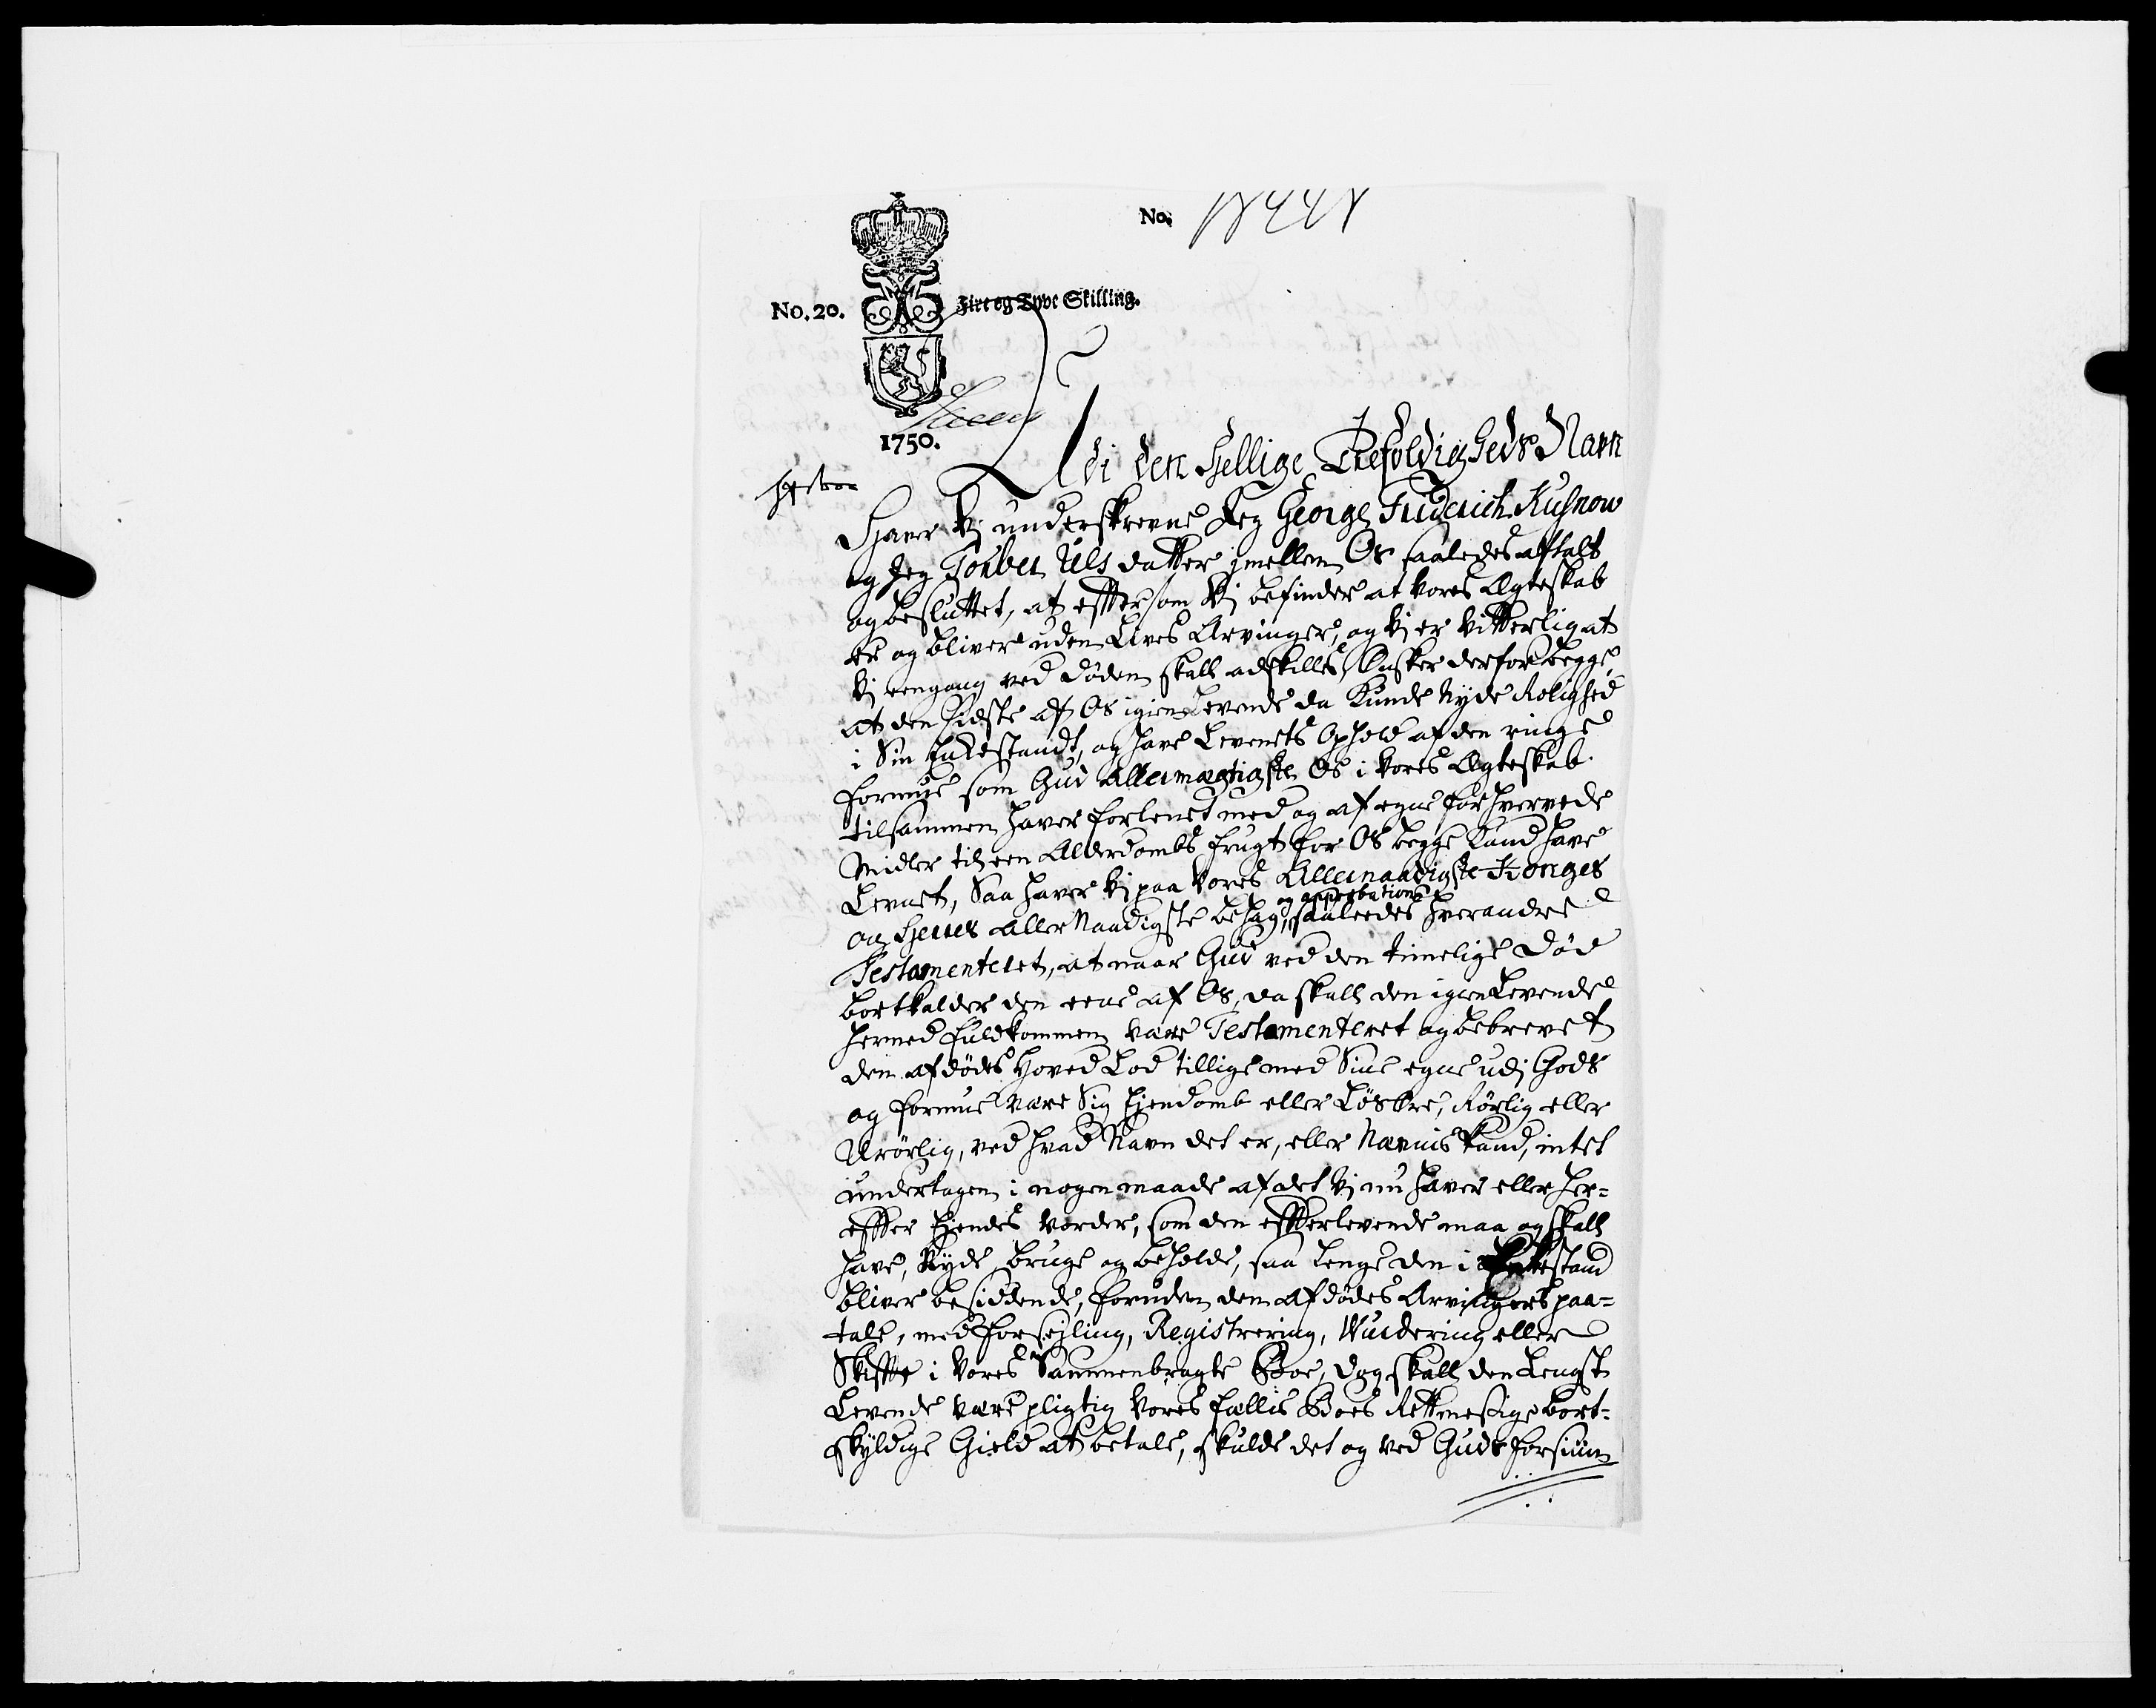 No. 18448
No. 20. Fire og Tyve Skilling.
1750.
Udi den Hellige Trefoldigheds Navn
Haver Vj underskrevne Jeg George Friderich Kusnow
og Jeg Torber Uls datter jmellem Os saaledes aftalt
og besluttet, at efftersom Vj befinder at vores Egteskab
er og bliver uden Lives Arvinger, og Vj er vitterlig at
Vj eengang ved døden skall adskilles, Ønsker derfor begge,
at den sidste af Os igien Levende da kunde Nyde Rolighed
i Sin Enkestandt, og have Levenets Ophold af den ringe
formue som Gud Allermægtigste Os i vores Egteskab
tilsammen haver forlenet med og af egne forhvervede
Midler til een Alderdombs frugt for Os begge kand have
Levnet, Saa haver Vj paa Vores Allernaadigste Konges
og approbation
og Herres Aller Naadigste behag, saaleedes hverandre
Testamenteret, at naar Gud ved den timelige Død
bortkalder den eene af Os, da skall den igien Levende
hermed fuldkommen være Testamenteret og bebrevet
den afdødes Hoved Lod tillige med Sine egne udj Gods
og formue være Sig Ejendomb eller Løsöre, Rørlig eller
Urørlig, ved hvad Navn det er, eller Nævnis kand, intet
undertagen i nogen maade af det Vj nu haver eller her=
effter Ejendes vorder, som den effterlevende maa og skall
have, Nyde, bruge og beholde, saa lenge den i Enkestand
bliver besiddende, foruden den afdødes Arvingers paa=
tale, med forsejling, Registrering, Wurdering eller
Skiffte i Vores Sammenbragte Boe, dog skall den Lengst
Levende være pligtig Vores fællis Boes Rettmesige bort=
skyldige Gield at betale, skulde det og ved Guds forsiun